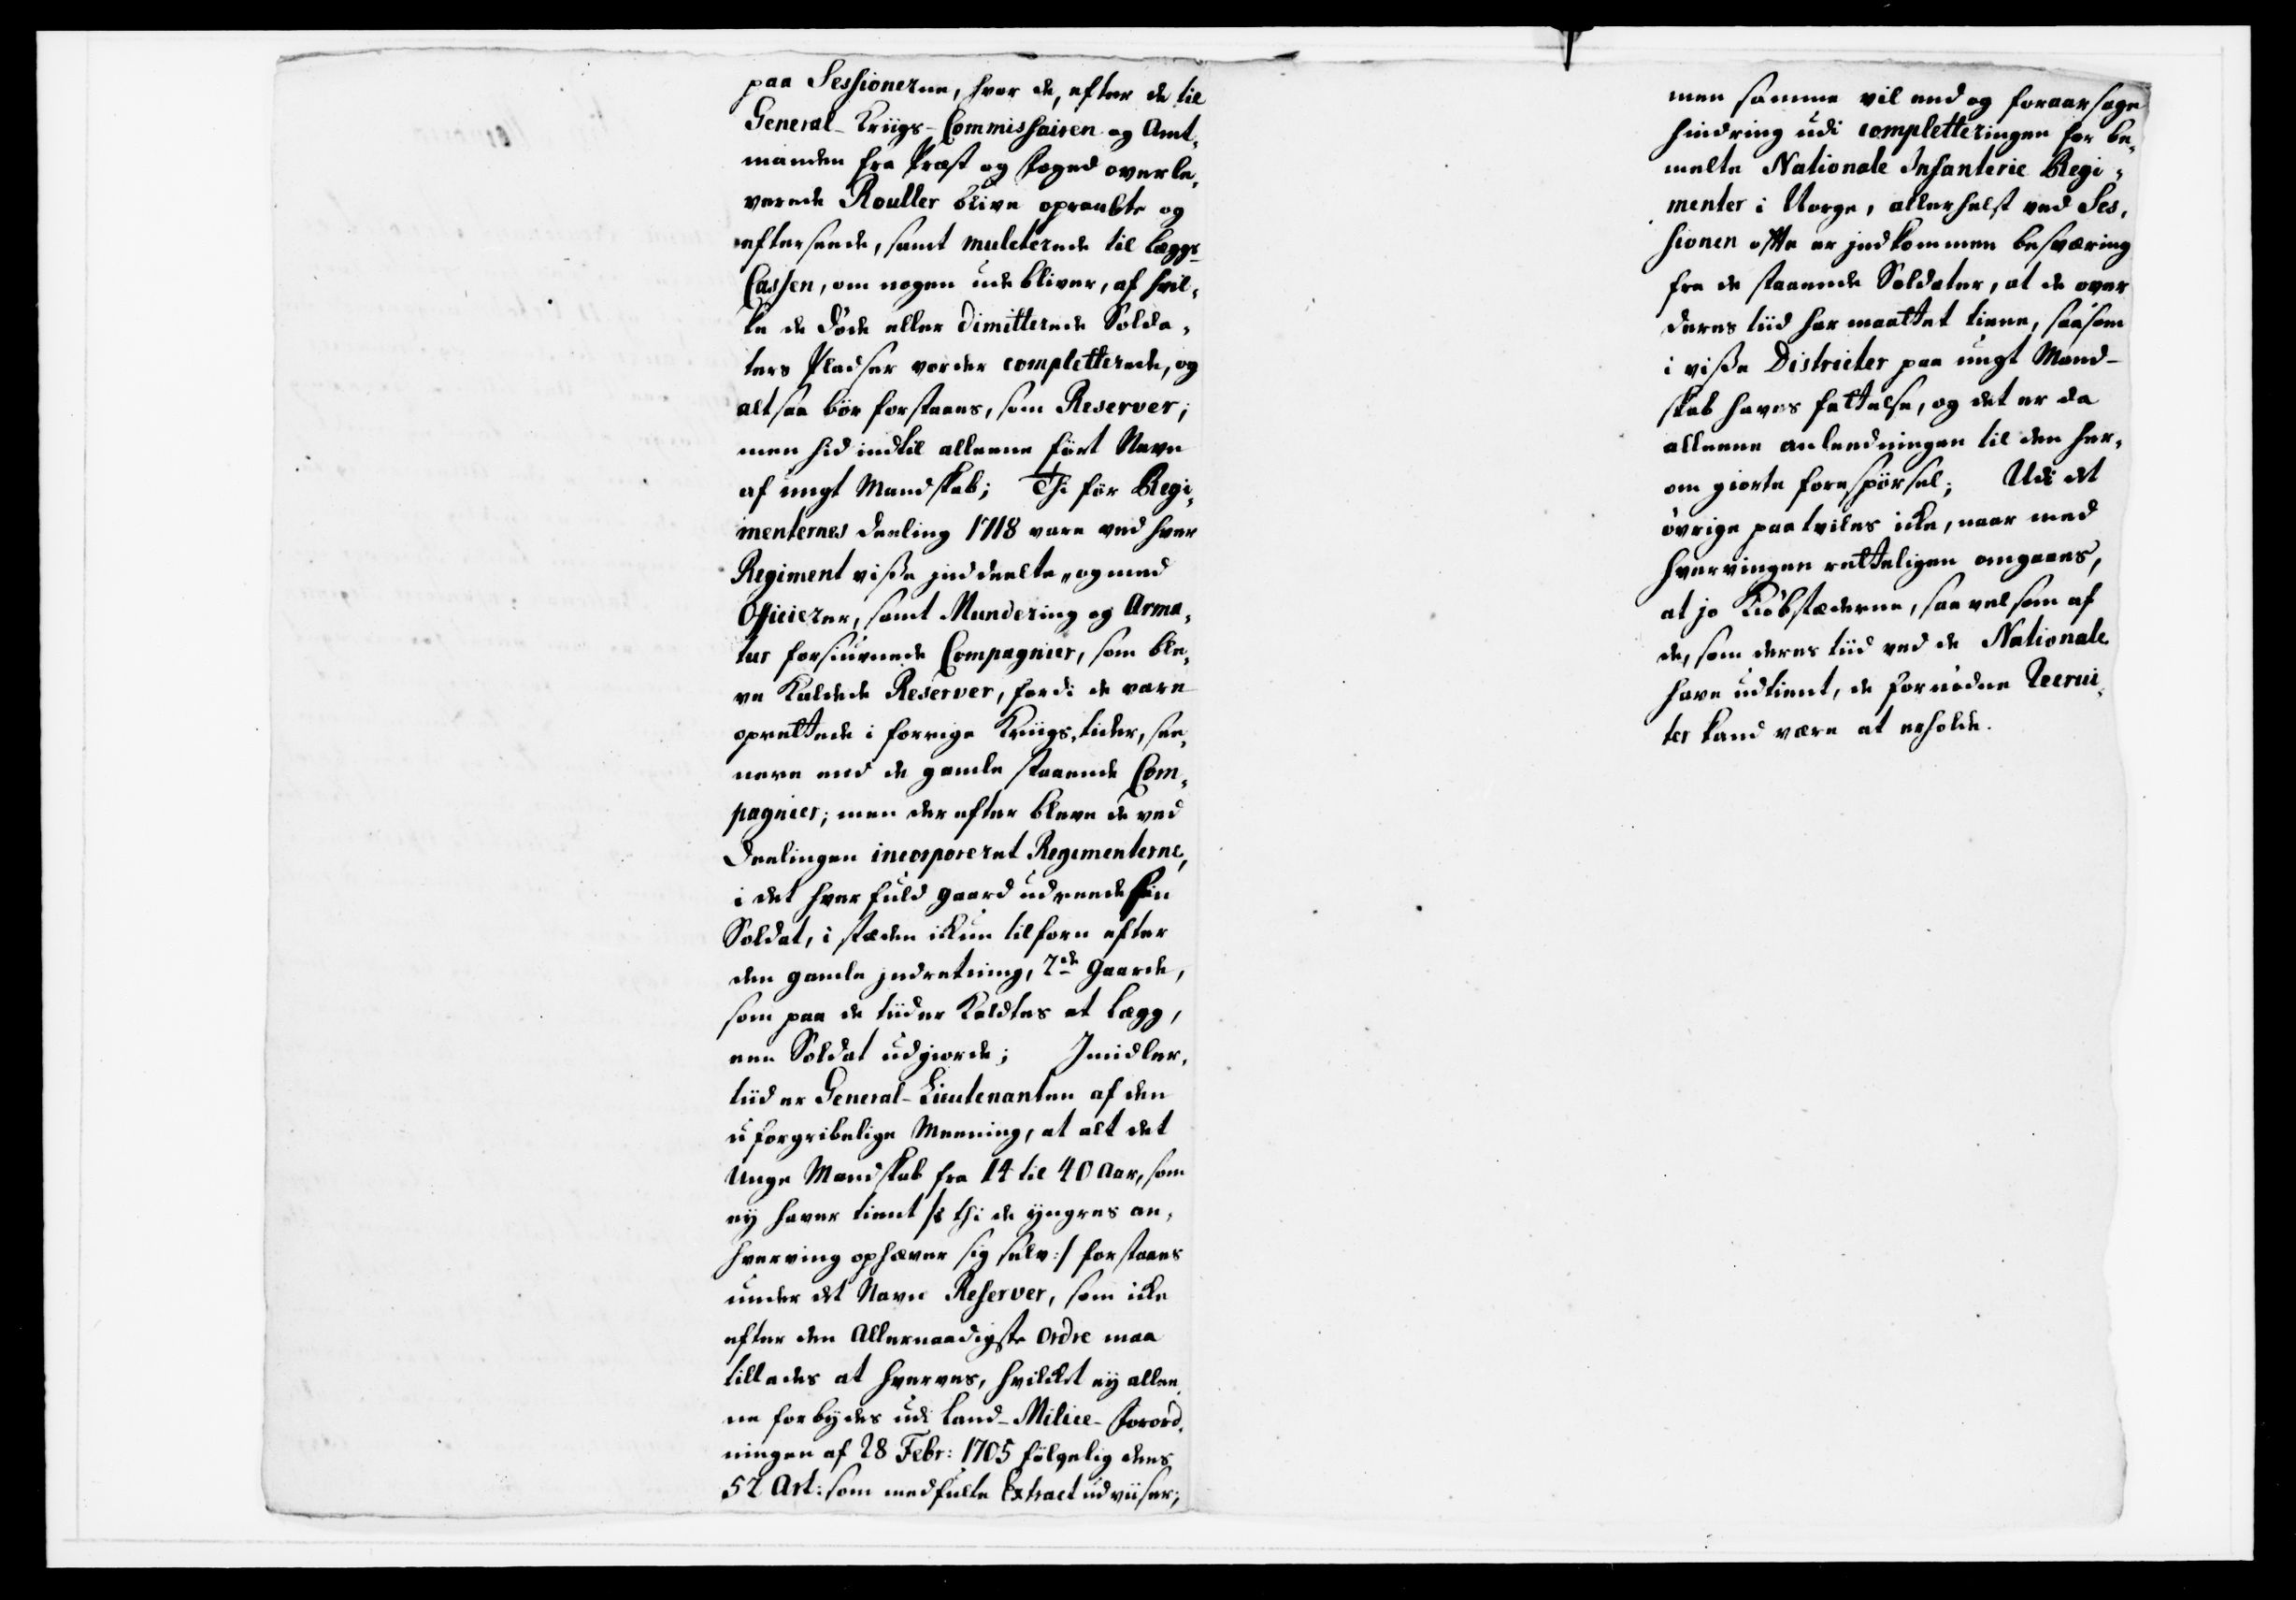 paa Sessionerne, hvor de, efter de til
General-Kriigs-Commissairen og Amt,
manden fra Præst og Foged overle,
verede Rouller blive opraabte og
eftersende, samt mulcterede til Lægs-
Cassen, om nogen udebliver, af hvil,
ke de Døde eller Dimitterede Solda,
ters Pladser vorder completterede, og
altsaa bør forstaaes, som Reserver;
men hid indtil alleene ført Navn
af ungt Mandskab; Thi før Regi,
menternes deeling 1718 vare ved hver
Regiment visse inddeelte, og med
Officierer, samt Mundering og Arma,
tur forsiunede Compagnier, som ble,
ve kaldede Reserver, fordi de vare
oprettede i forrige Kriigs-tider, see,
nere end de gamle staaende Com,
pagnier; men derefter bleve de ved
Deelingen incorporeret Regimenterne,
i det hver fuld gaard udreede sin
Soldat, i stæden ikun tilforn efter
den gamle indretning, 2de Gaarde,
som paa de tiider kaldtes et Lægg,
een Soldat udgiorde; Imidler,
tiid er General-Lieutenanten af den
uforgribelige Meening, at alt det
Unge Mandskab fra 14 til 40 Aar, som
ey haver tient /: thi de yngres an,
hverving ophæver sig selv :/ forstaaes
under det Navn Reserver, som icke
efter den Allernaadigste Ordre maa
tillades at hverves, hvilcket ey allee,
ne forbydes udi Land-Milice-Forord,
ningen af 28 Febr: 1705 følgelig dens
52 Art: som medfulte Extract udviiser;
men samme vil end og foraarsage
hindring udi completteringen for be,
melte Nationale Infanterie Regi,
menter i Norge, allerhelst ved Ses,
sionen ofte er indkommen besværing
fra de staaende Soldater, at de over
deres tiid har maattet tiene, saasom
i visse Districter paa ungt Mand-
skab haves fattelse, og det er da
alleene anleedningen til den her,
om giorte forespørsel; Udi det
øvrige paatviles icke, naar med
hvervingen rettelig​en omgaaes,
at jo Kiøbstæderne, saavelsom af
de, som deres tiid ved de Nationale
have udtient, de fornødne Recrui,
ter kand være at erholde.